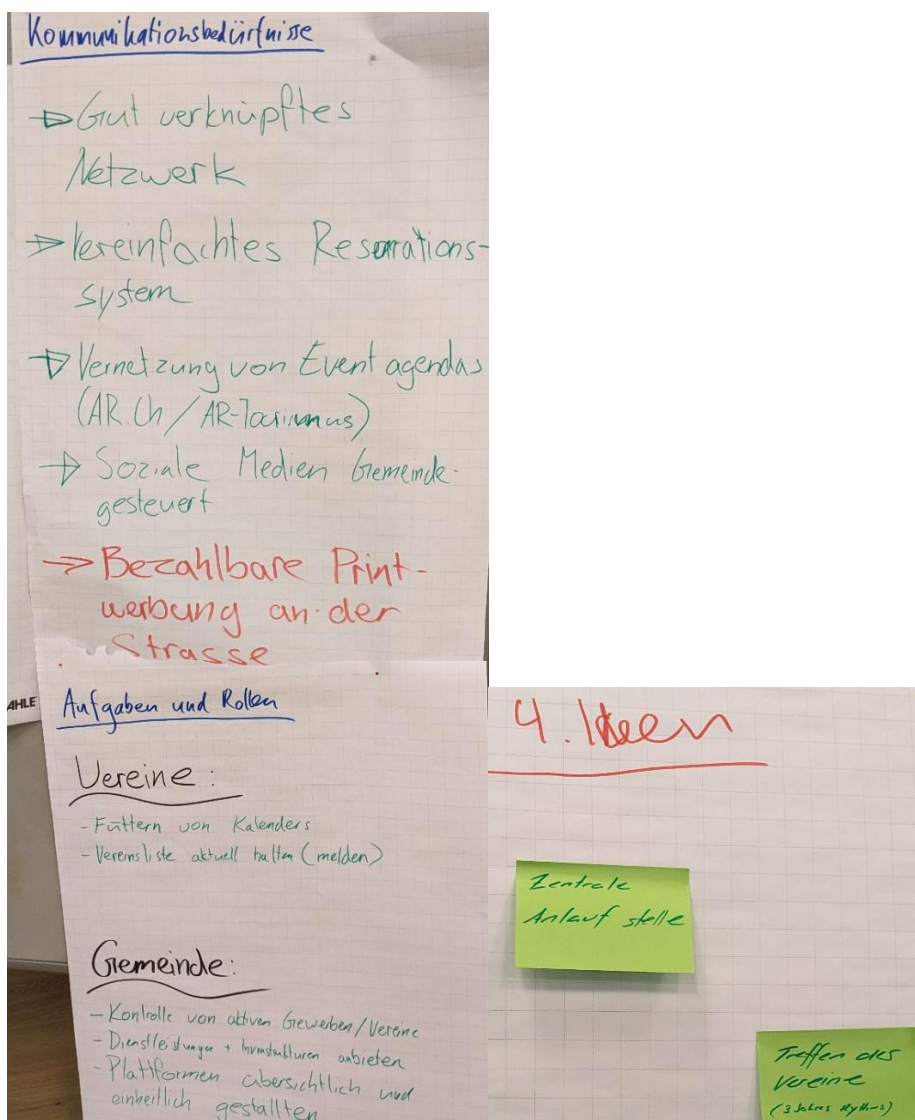 Kommunikationsbedürfnisse
Gut verknüpftes
Netzwerk
Vereinfachtes Reservations-
system
Vernetzung von Event agendas
(AR.Ch / AR-Tourismus)
Soziale Medien Gemeinde-
gesteuert
Bezahlbare Print-
werbung an der
Strasse
AHLE
Aufgaben und Rollen
Vereine:
- Füttern von Kalenders
- Vereinsliste aktuell halten (melden)
Gemeinde:
- Kontrolle von aktiven Gewerben/Vereine
- Dienstleistungen + anbieten
- Plattformen übersichtlich und
einheitlich gestallten
4. Ideen
Zentrale
Anlauf stelle
Treffen des
Vereine
(3 Jahres Rythmus)